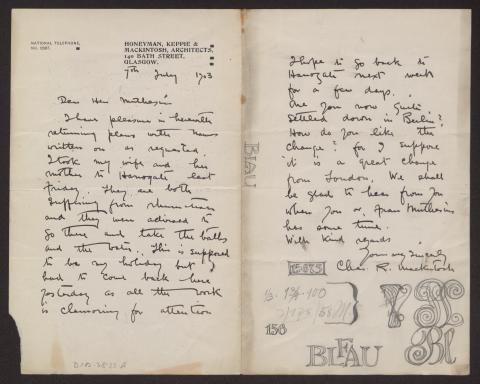 NATIONAL TELEPHONE,
HONEYMAN, KEPPIE &
MACKINTOSH, ARCHITECTS,
140 BATH STREET,
GLASGOW.
7th July 1903
Dear Herr Muthesius
I have pleasure in herewith
returning plans with names
written on as requested.
I took my wife and her
mother to Harrogate last
Friday. They are both
suffering from rheumatism
and they were advised to
go there and take the baths
and the waters. This is supposed
to be my holiday but I
had to come back here
yesterday as all the work
is clamouring for attention
I hope to go back to
Harrogate next week
for a few days.
Are you now quite
settled down in Berlin?
How do you like the
change? for I suppose
it is a great change
from London. We shall
be glad to hear from you
when you or Frau Muthesius
has some time.
With kind regards
Yours very sincerely
Chas. R. Mackintosh
BLAU
156
BLFAU